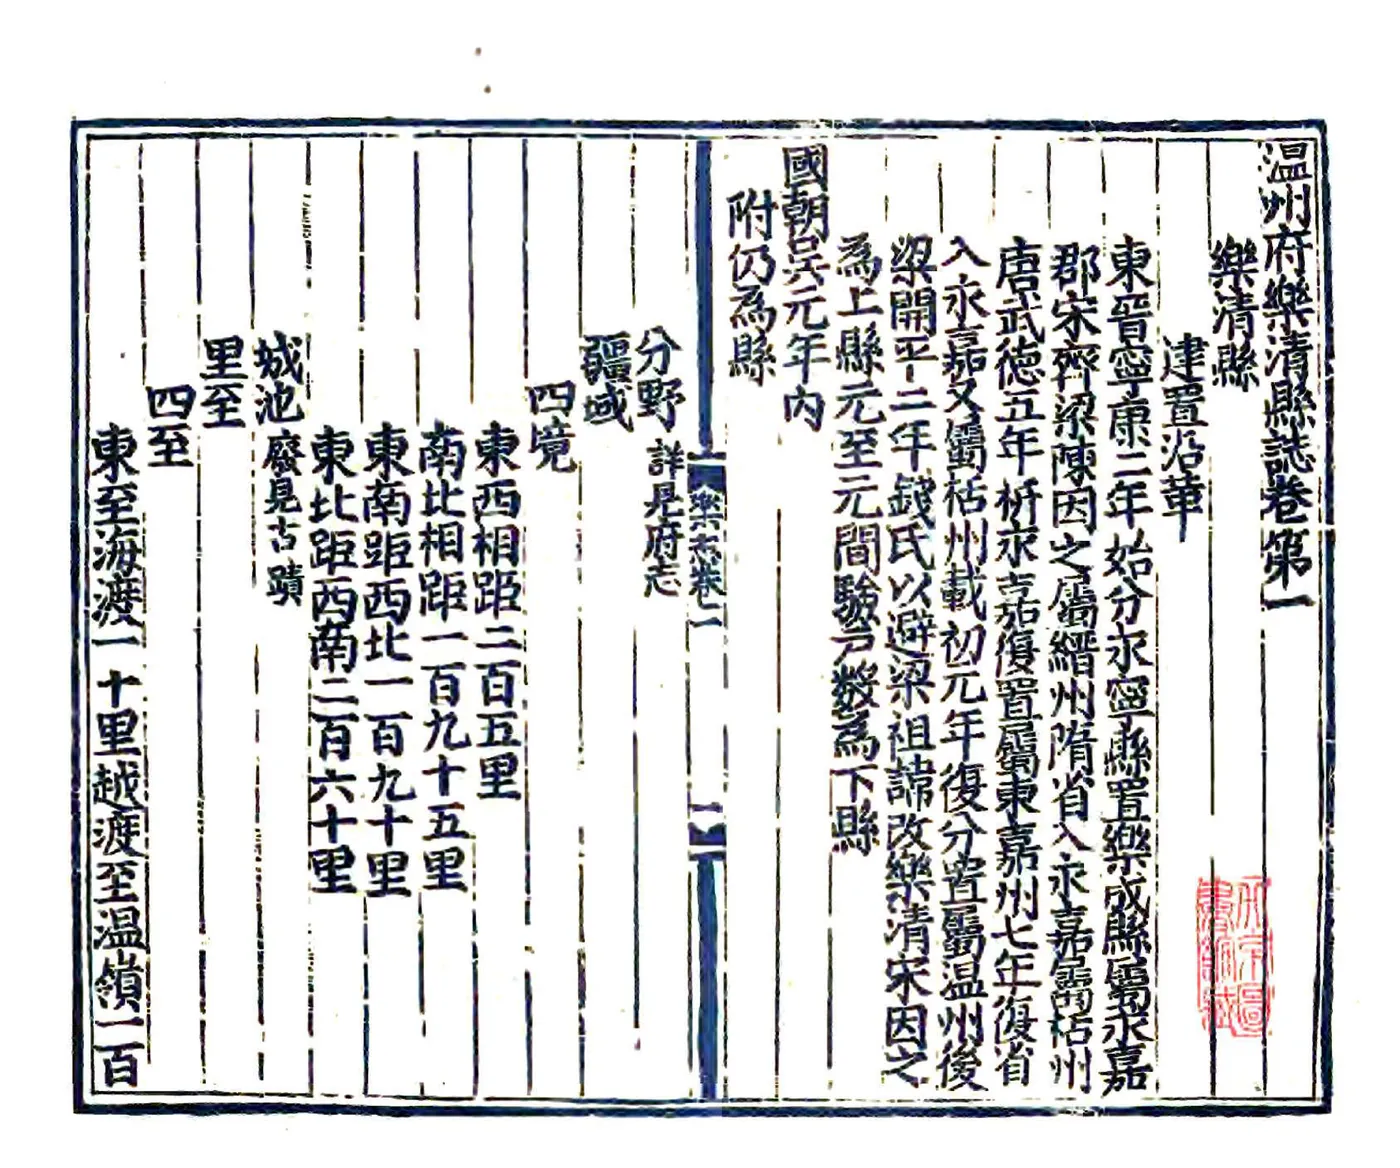 温州府樂清縣誌卷第一
樂清縣
建置沿革
東晉寧康二年始分永寧縣置樂成縣屬永嘉
郡宋齊梁陳因之屬縉州隋省入永嘉屬栝州
唐武德五年析永嘉復置屬東嘉州七年復省
入永嘉又屬栝州載初元年復分置屬温州後
梁開平二年錢氏以避梁祖諱改樂清宋因之
為上縣元至元間驗戶數為下縣
國朝吳元年內
附仍為縣
樂志卷一
一
分野 詳見府志
疆域
四境
東西相距二百五里
南北相距一百九十五里
東南距西北一百九十里
東北距西南二百六十里
城池 廢見古蹟
里至
四至
東至海渡一十里越渡至温嶺一百